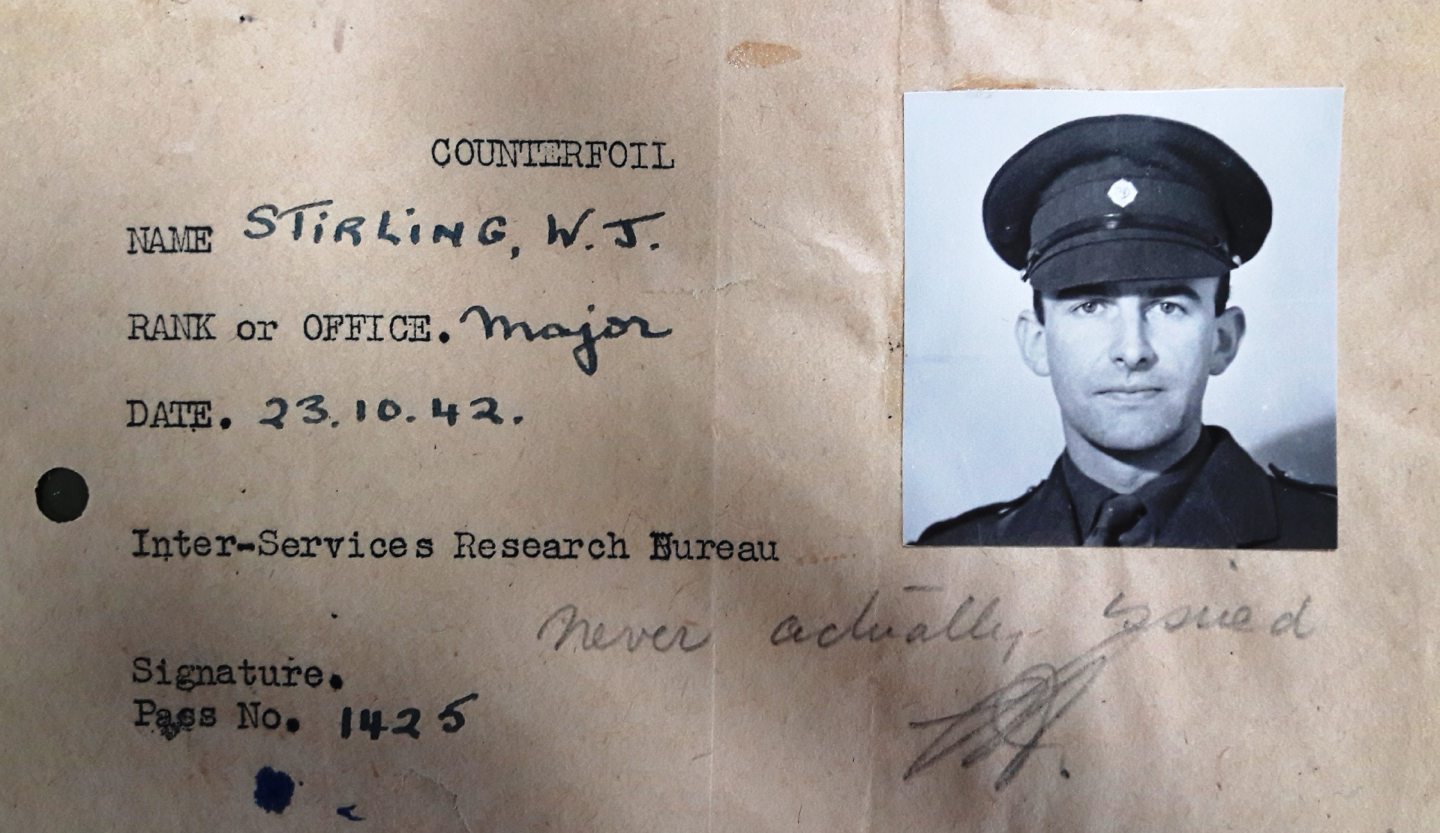 COUNTERFOIL
NAME STIRLING, W. J.
RANK or OFFICE. Major
DATE. 23.10.42.
Inter-Services Research Bureau
Never actually issued
Signature.
Pass No. 1425